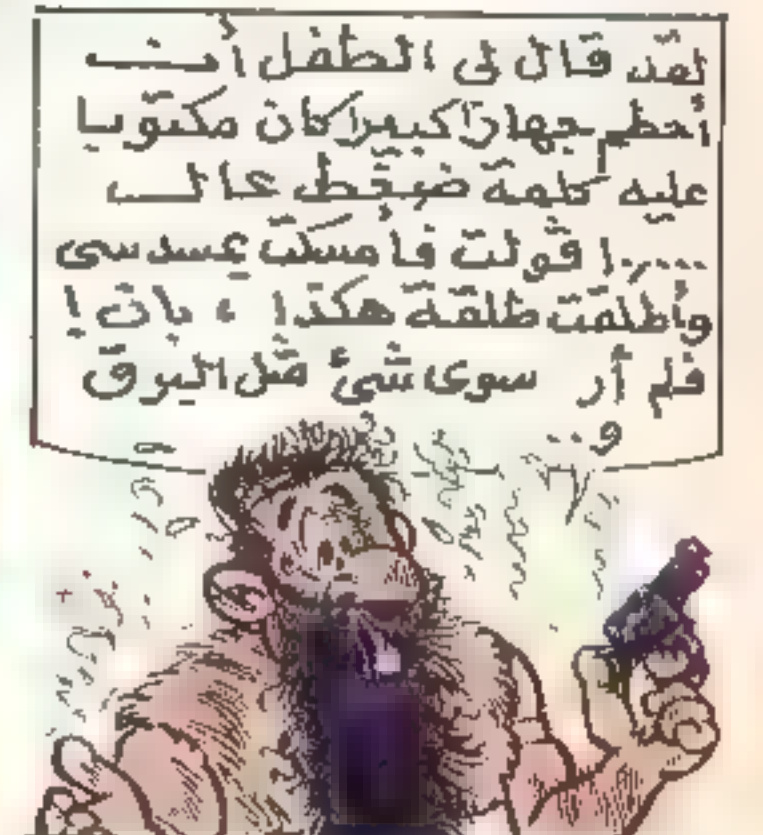 لقد قال لى الطفل أنت
أحطم جهازا كبيرا كان مكتوبا
عليه كلمة ضغط عالى
.....! قولت فأمسكت بمسدسى
وأطلقت طلقة هكذا ، بان !
فلم أر سوى شئ مثل البرق
و..